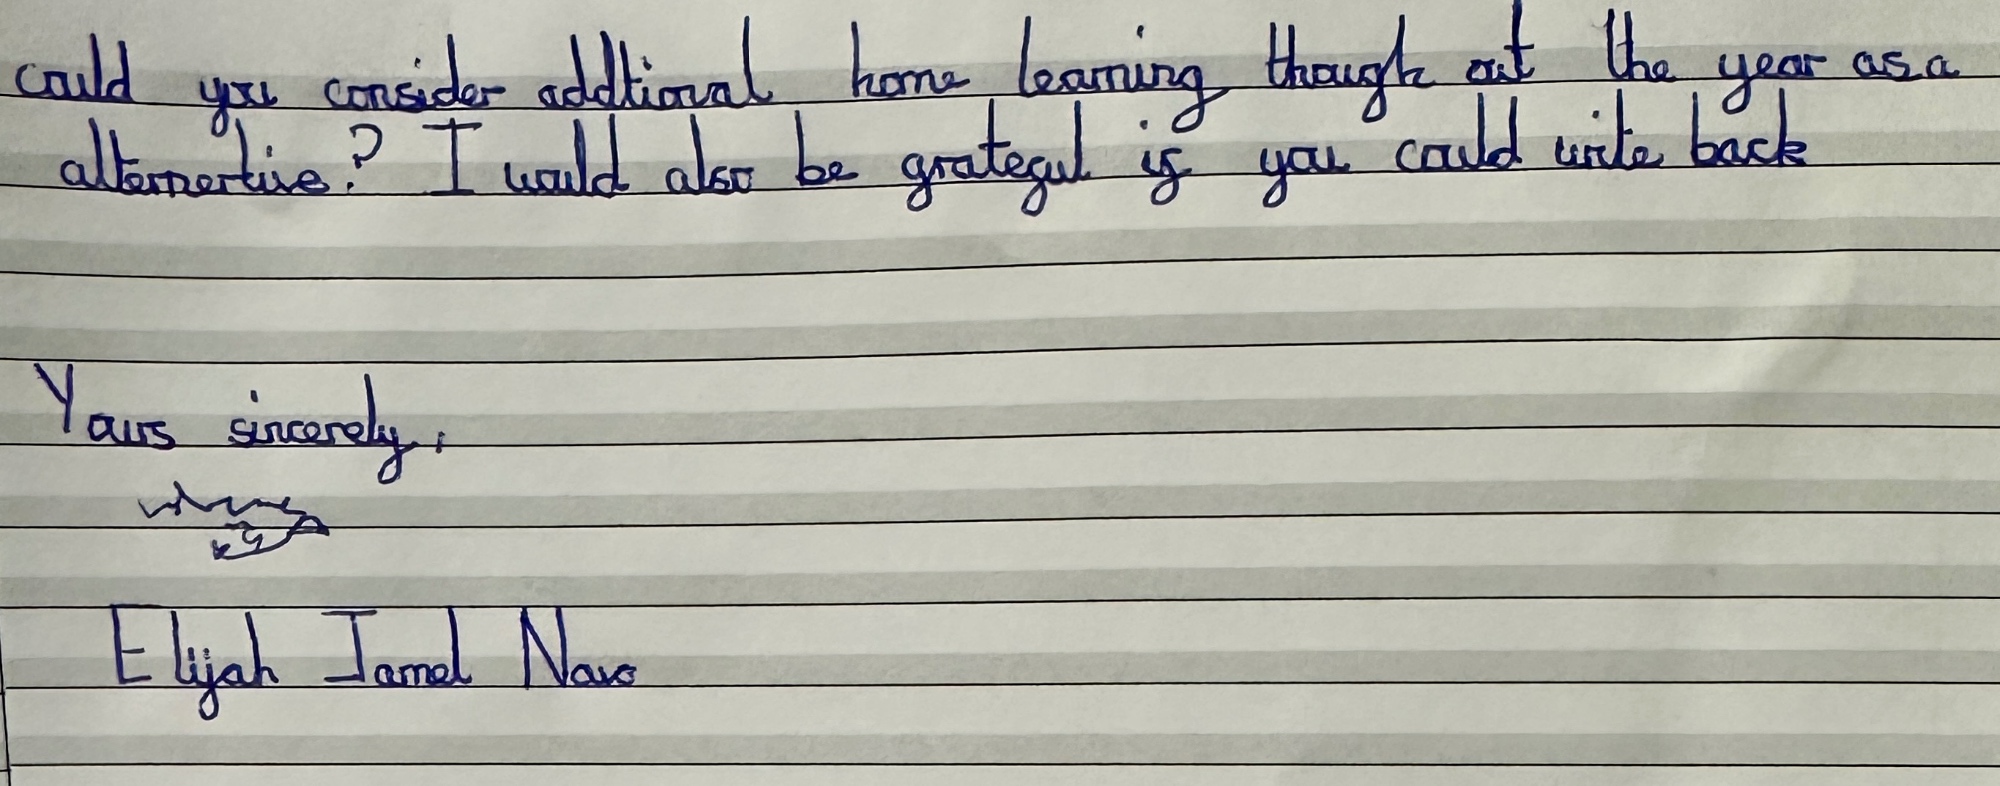 could you consider addtional home learning though out the year as a
alternertive? I would also be grateful if you could write back
Yours sincerely,
Elijah Jamel Navo